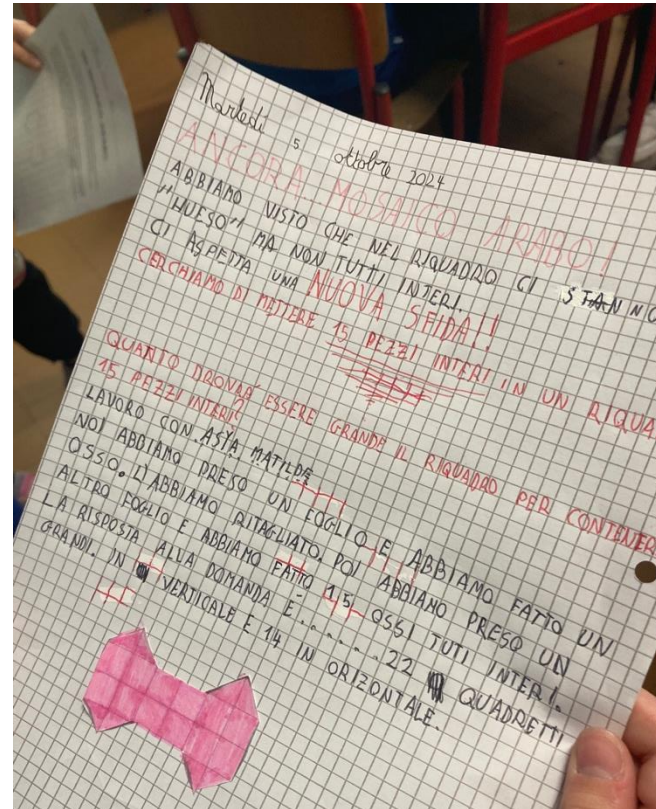 Martedì 5 ottobre 2024
ANCORA MOSAICO ARABO!
ABBIAMO VISTO CHE NEL RIQUADRO CI STANNO
"HUESO" MA NON TUTTI INTERI.
CI ASPETTA UNA NUOVA SFIDA!!
CERCHIAMO DI METTERE 15 PEZZI INTERI IN UN RIQUA
QUANTO DROVRÁ ESSERE GRANDE IL RIQUADRO PER CONTENER
15 PEZZI INTERI?
LAVORO CON ASIA, MATILDE
NOI ABBIAMO PRESO UN FOGLIO E ABBIAMO FATTO UN
OSSO. L'ABBIAMO RITAGLIATO. POI ABBIAMO PRESO UN
ALTRO FOGLIO E ABBIAMO FATTO 15 OSSI TUTI INTERI.
LA RISPOSTA ALLA DOMANDA É...... 22 QUADRETTI
GRANDI. IN VERTICALE E 14 IN ORIZONTALE.